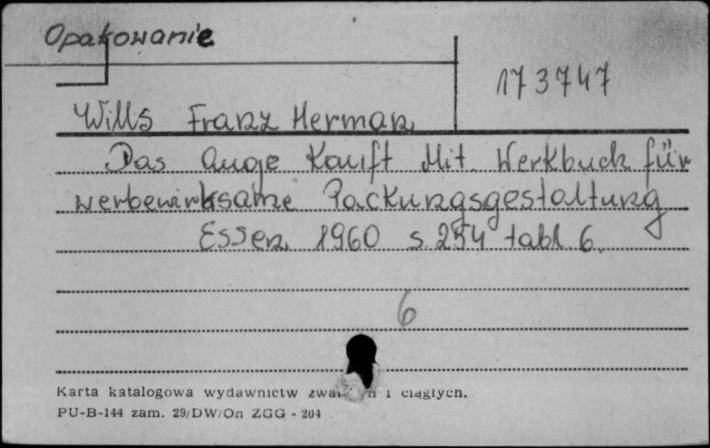 Opakowanie
173747
Wills Franz Herman
Das Auge Kauft Mit. Werkbuch für
werbewirksame Packungsgestaltung
Essen 1960 s. 254 tabl. 6.
6
Karta katalogowa wydawnictw i ciągłych.
PU-B-144 zam. 29/DW/On ZGG - 204